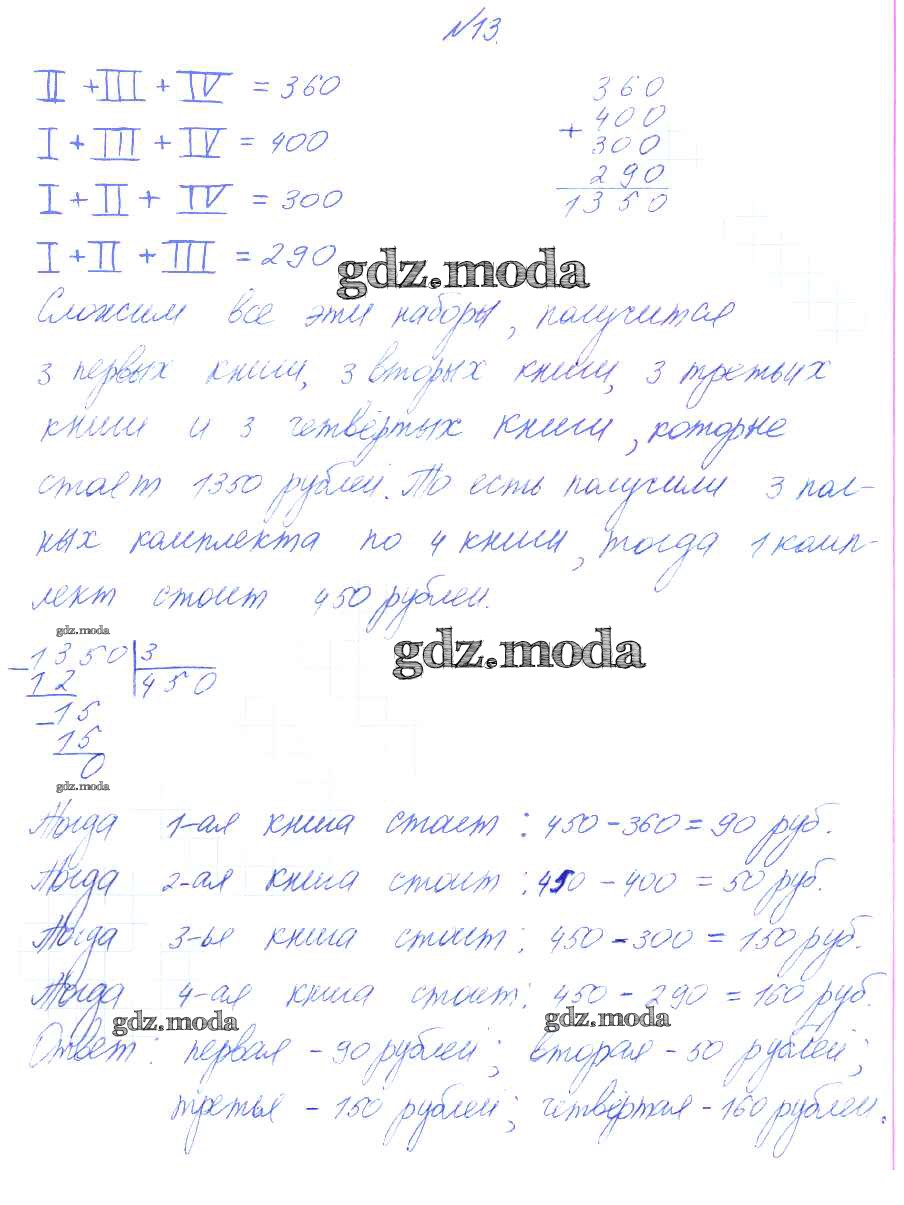 №13.
II + III + IV = 360
I + III + IV = 400
I + II + IV = 300
I + II + III = 290
360
+ 400
300
290
1350
gdz.moda
Сложим все эти наборы, получится
3 первых книги, 3 вторых книги, 3 третьих
книги и 3 четвёртых книги, которые
стоят 1350 рублей. То есть получили 3 пол-
ных комплекта по 4 книги, тогда 1 комп-
лект стоит 450 рублей.
gdz.moda
gdz.moda
-1350 3
12 450
-15
15
0
gdz.moda
Тогда 1-ая книга стоит: 450 - 360 = 90 руб.
Тогда 2-ая книга стоит: 450 - 400 = 50 руб.
Тогда 3-ья книга стоит: 450 - 300 = 150 руб.
Тогда 4-ая книга стоит: 450 - 290 = 160 руб.
gdz.moda gdz.moda
Ответ: первая - 90 рублей; вторая - 50 рублей;
третья - 150 рублей; четвёртая - 160 рублей.